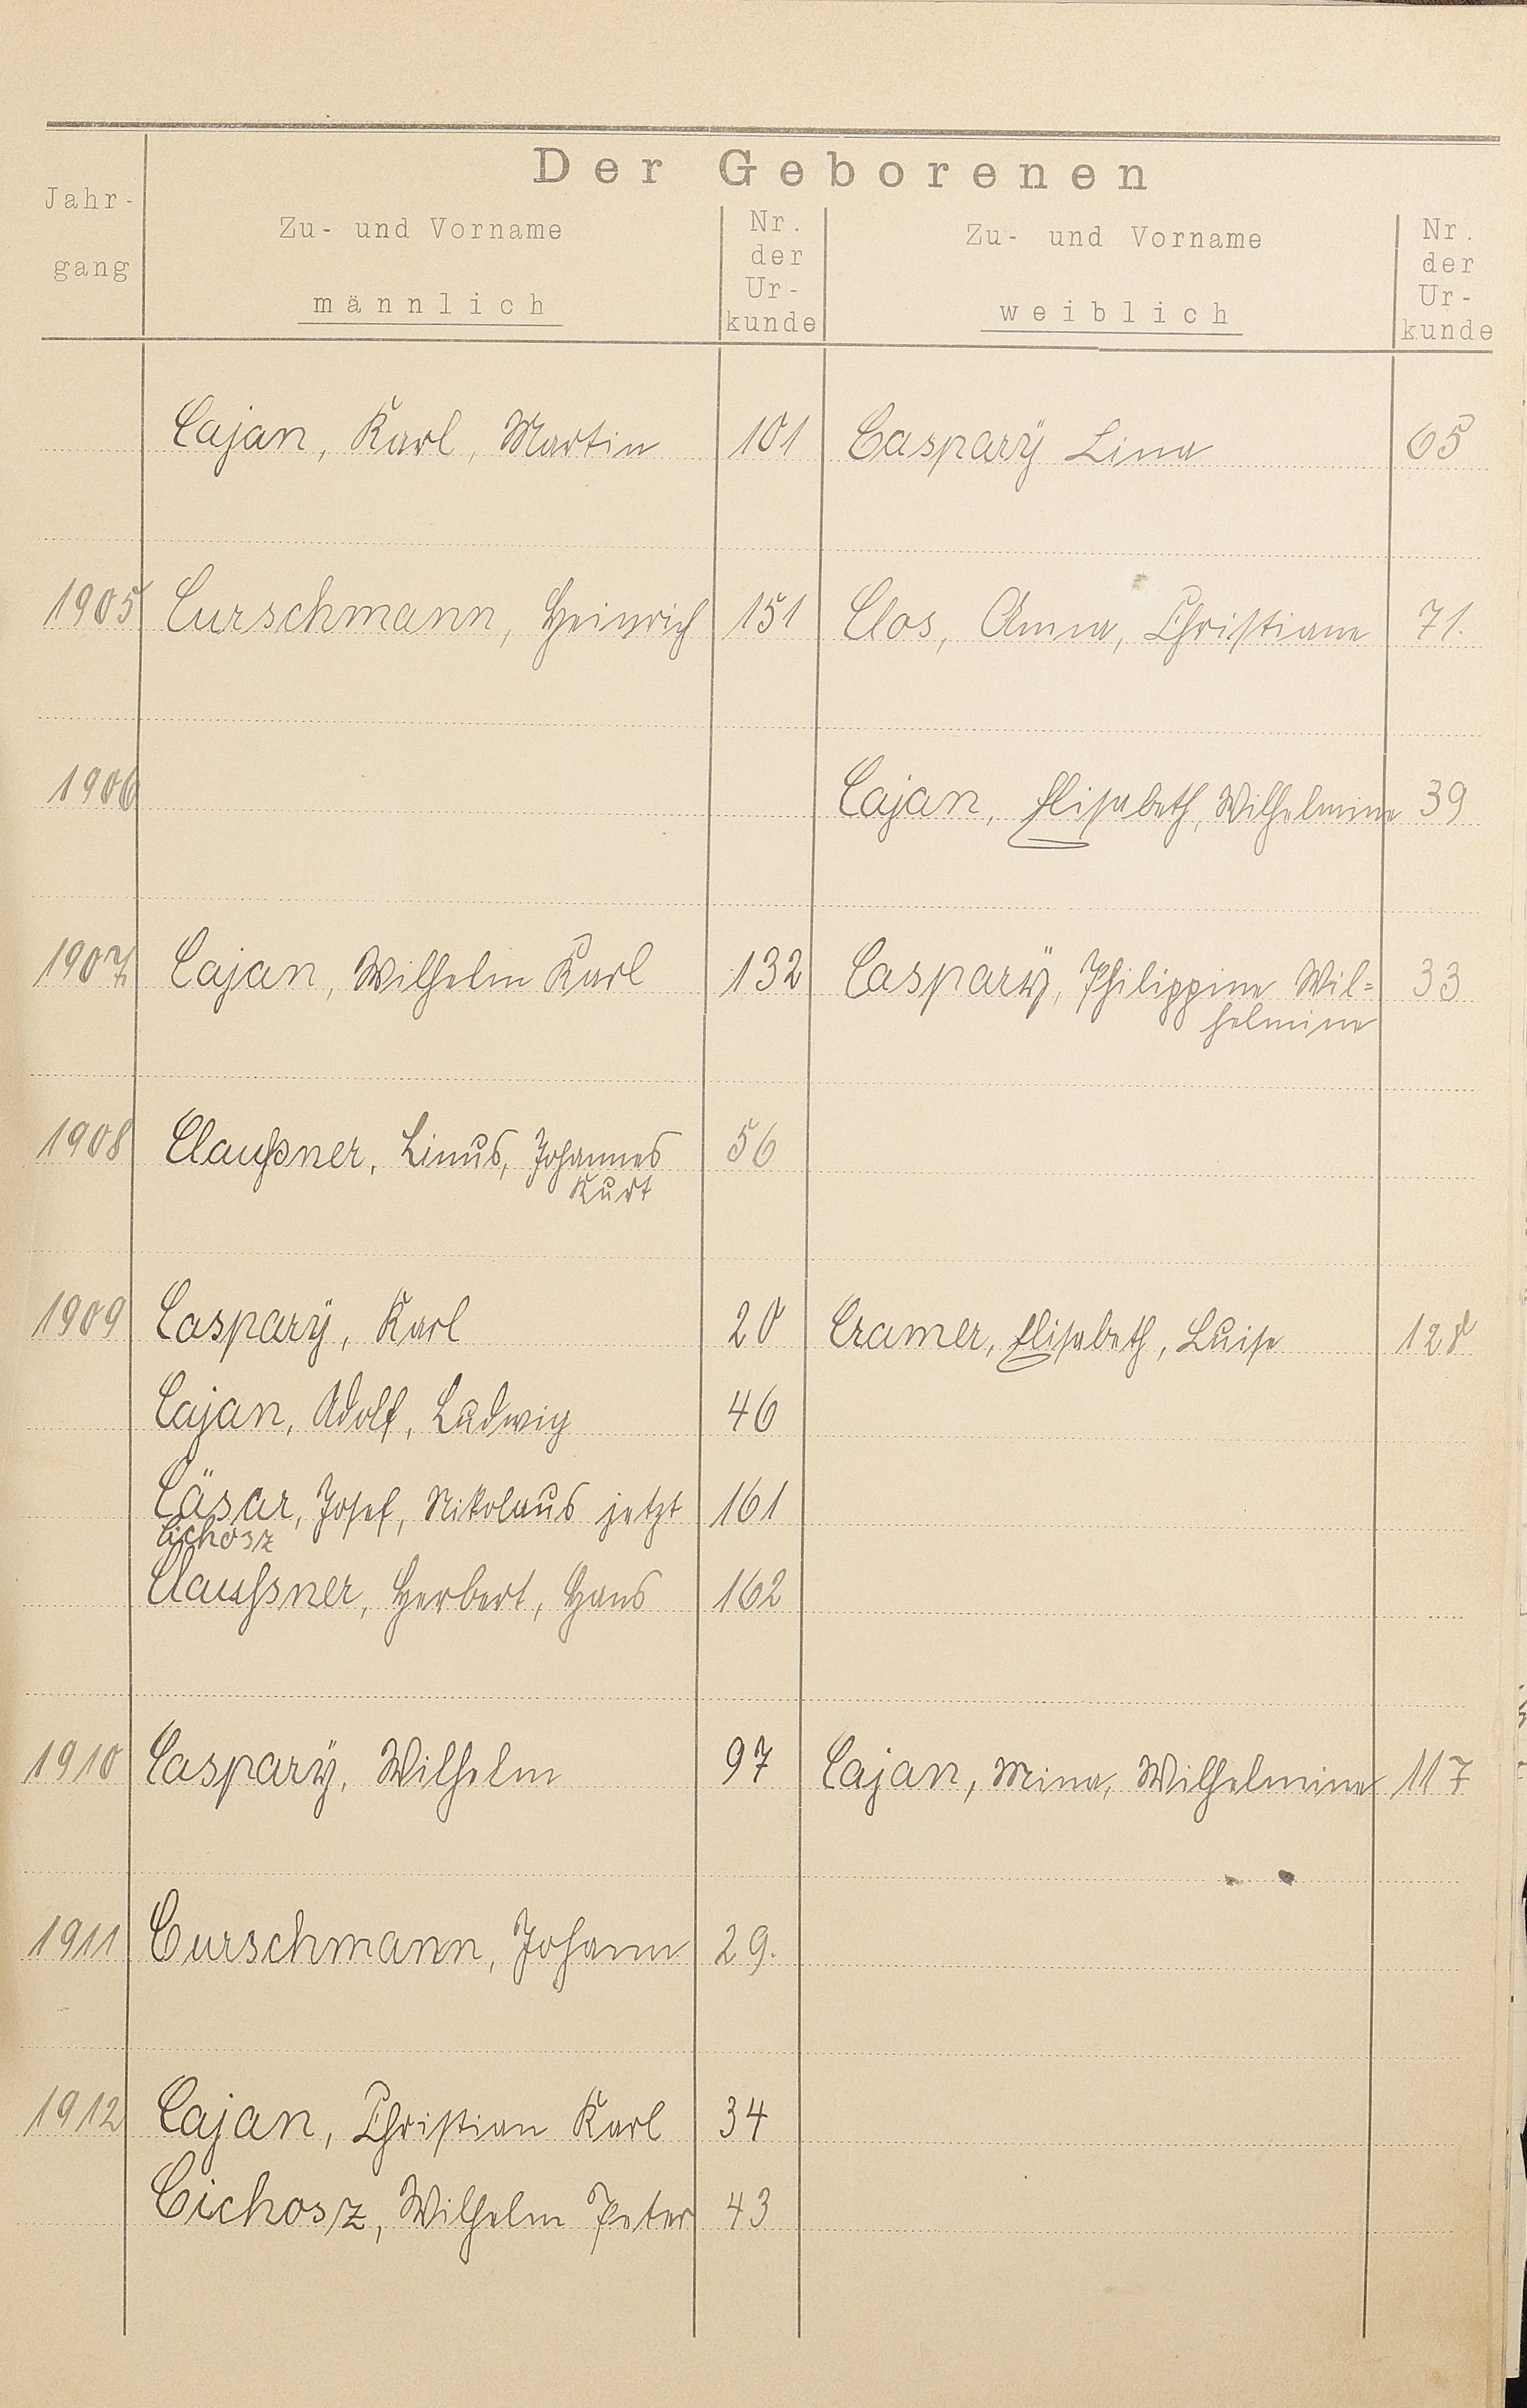 Der Geborenen
Jahr-
gang
Zu- und Vorname
männlich
Nr.
der
Ur-
kunde
Zu- und Vorname
weiblich
Nr.
der
Ur-
kunde
Cajan, Karl, Martin 101 Caspary Lina 65
1905 Curschmann, Heinrich 151 Clos, Anna, Christiane 71.
1906 Cajan, Elisabeth, Wilhelmine 39
1907 Cajan, Wilhelm Karl 132 Caspary, Philippine Wil= 33
helmine
1908 Claußner, Linus, Johannes 56
Kurt
1909 Caspary, Karl 20 Cramer, Elisabeth, Luise 128
Cajan, Adolf, Ludwig 46
Cäsar, Josef, Nikolaus jetzt 161
Cichosz
Claussner, Herbert, Hans 162
1910 Caspary, Wilhelm 97 Cajan, Mina, Wilhelmine 117
1911 Curschmann, Johann 29.
1912 Cajan, Christian Karl 34
Cichosz, Wilhelm Peter 43